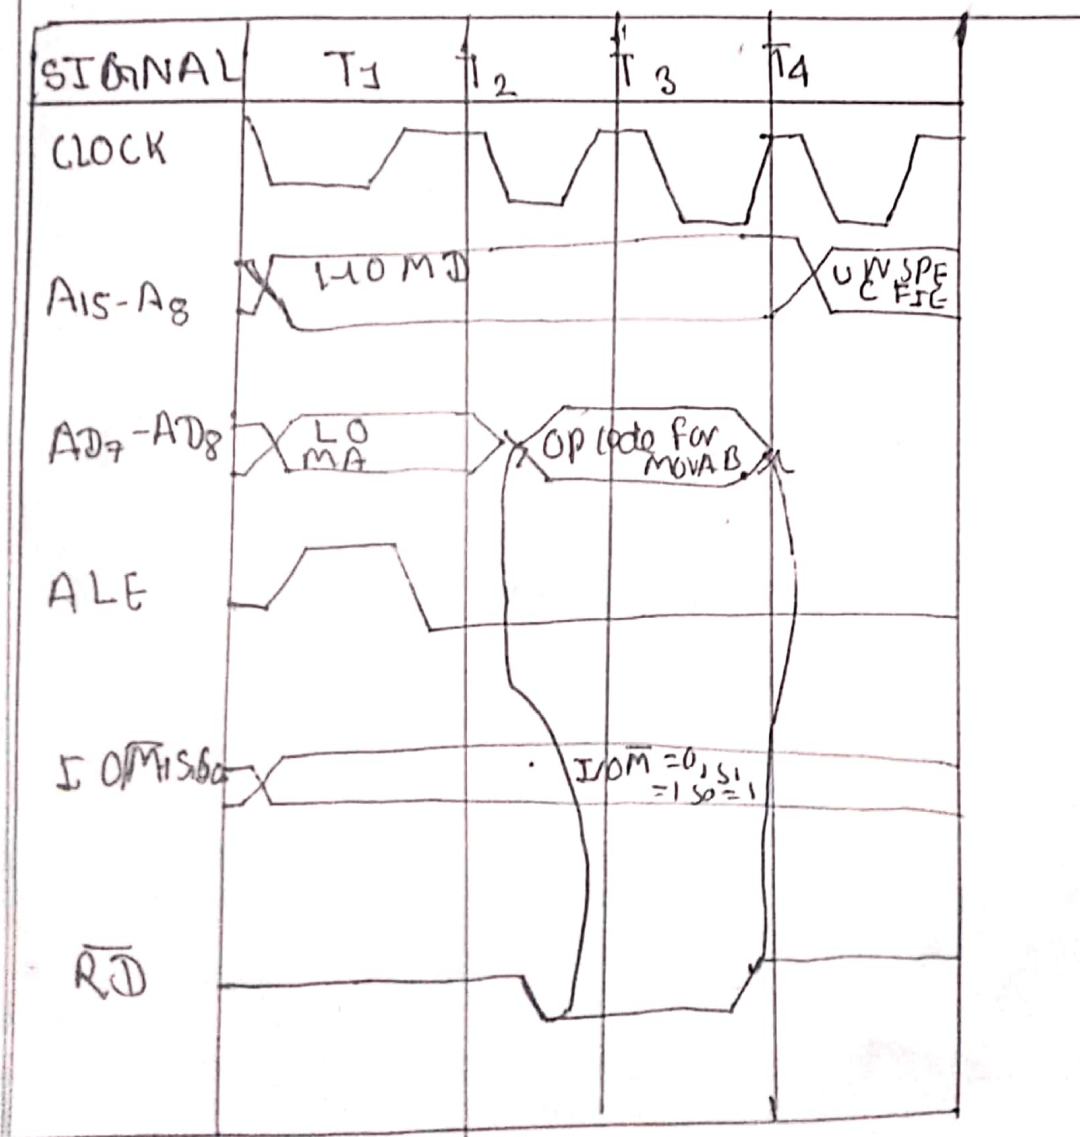 SIGNAL T1 T2 T3 T4
CLOCK
A15-A8 HOMD UNSPE
CFIE
AD7-AD8 LO Op code For
MA MOVA B
ALE
IO/M̅,S1S0 I/OM̅=0,S1
=1 S0=1
R̅D̅